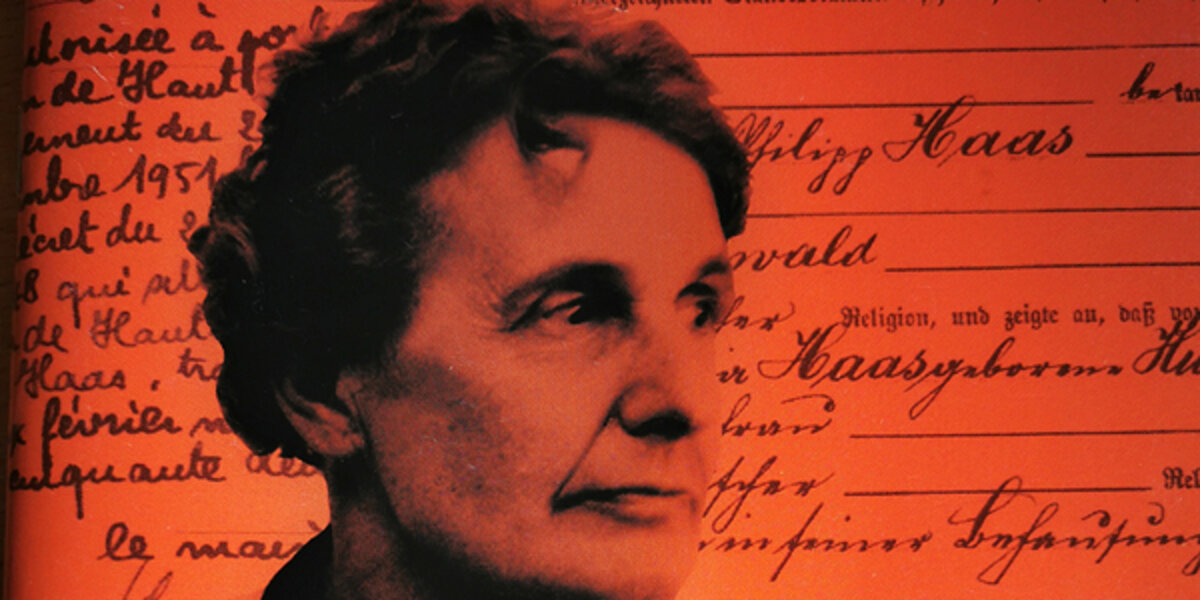 utorisée à por
de Haut
ement du 2
mbre 1951
écret du 2
48 qui
de Haut
Haas, tra
février
cinquante deu
le mair
be kan
Philipp Haas
wald
Religion, und zeigte an, daß von
Haas geborene Hu
frau
scher Rel
in seiner Behausung